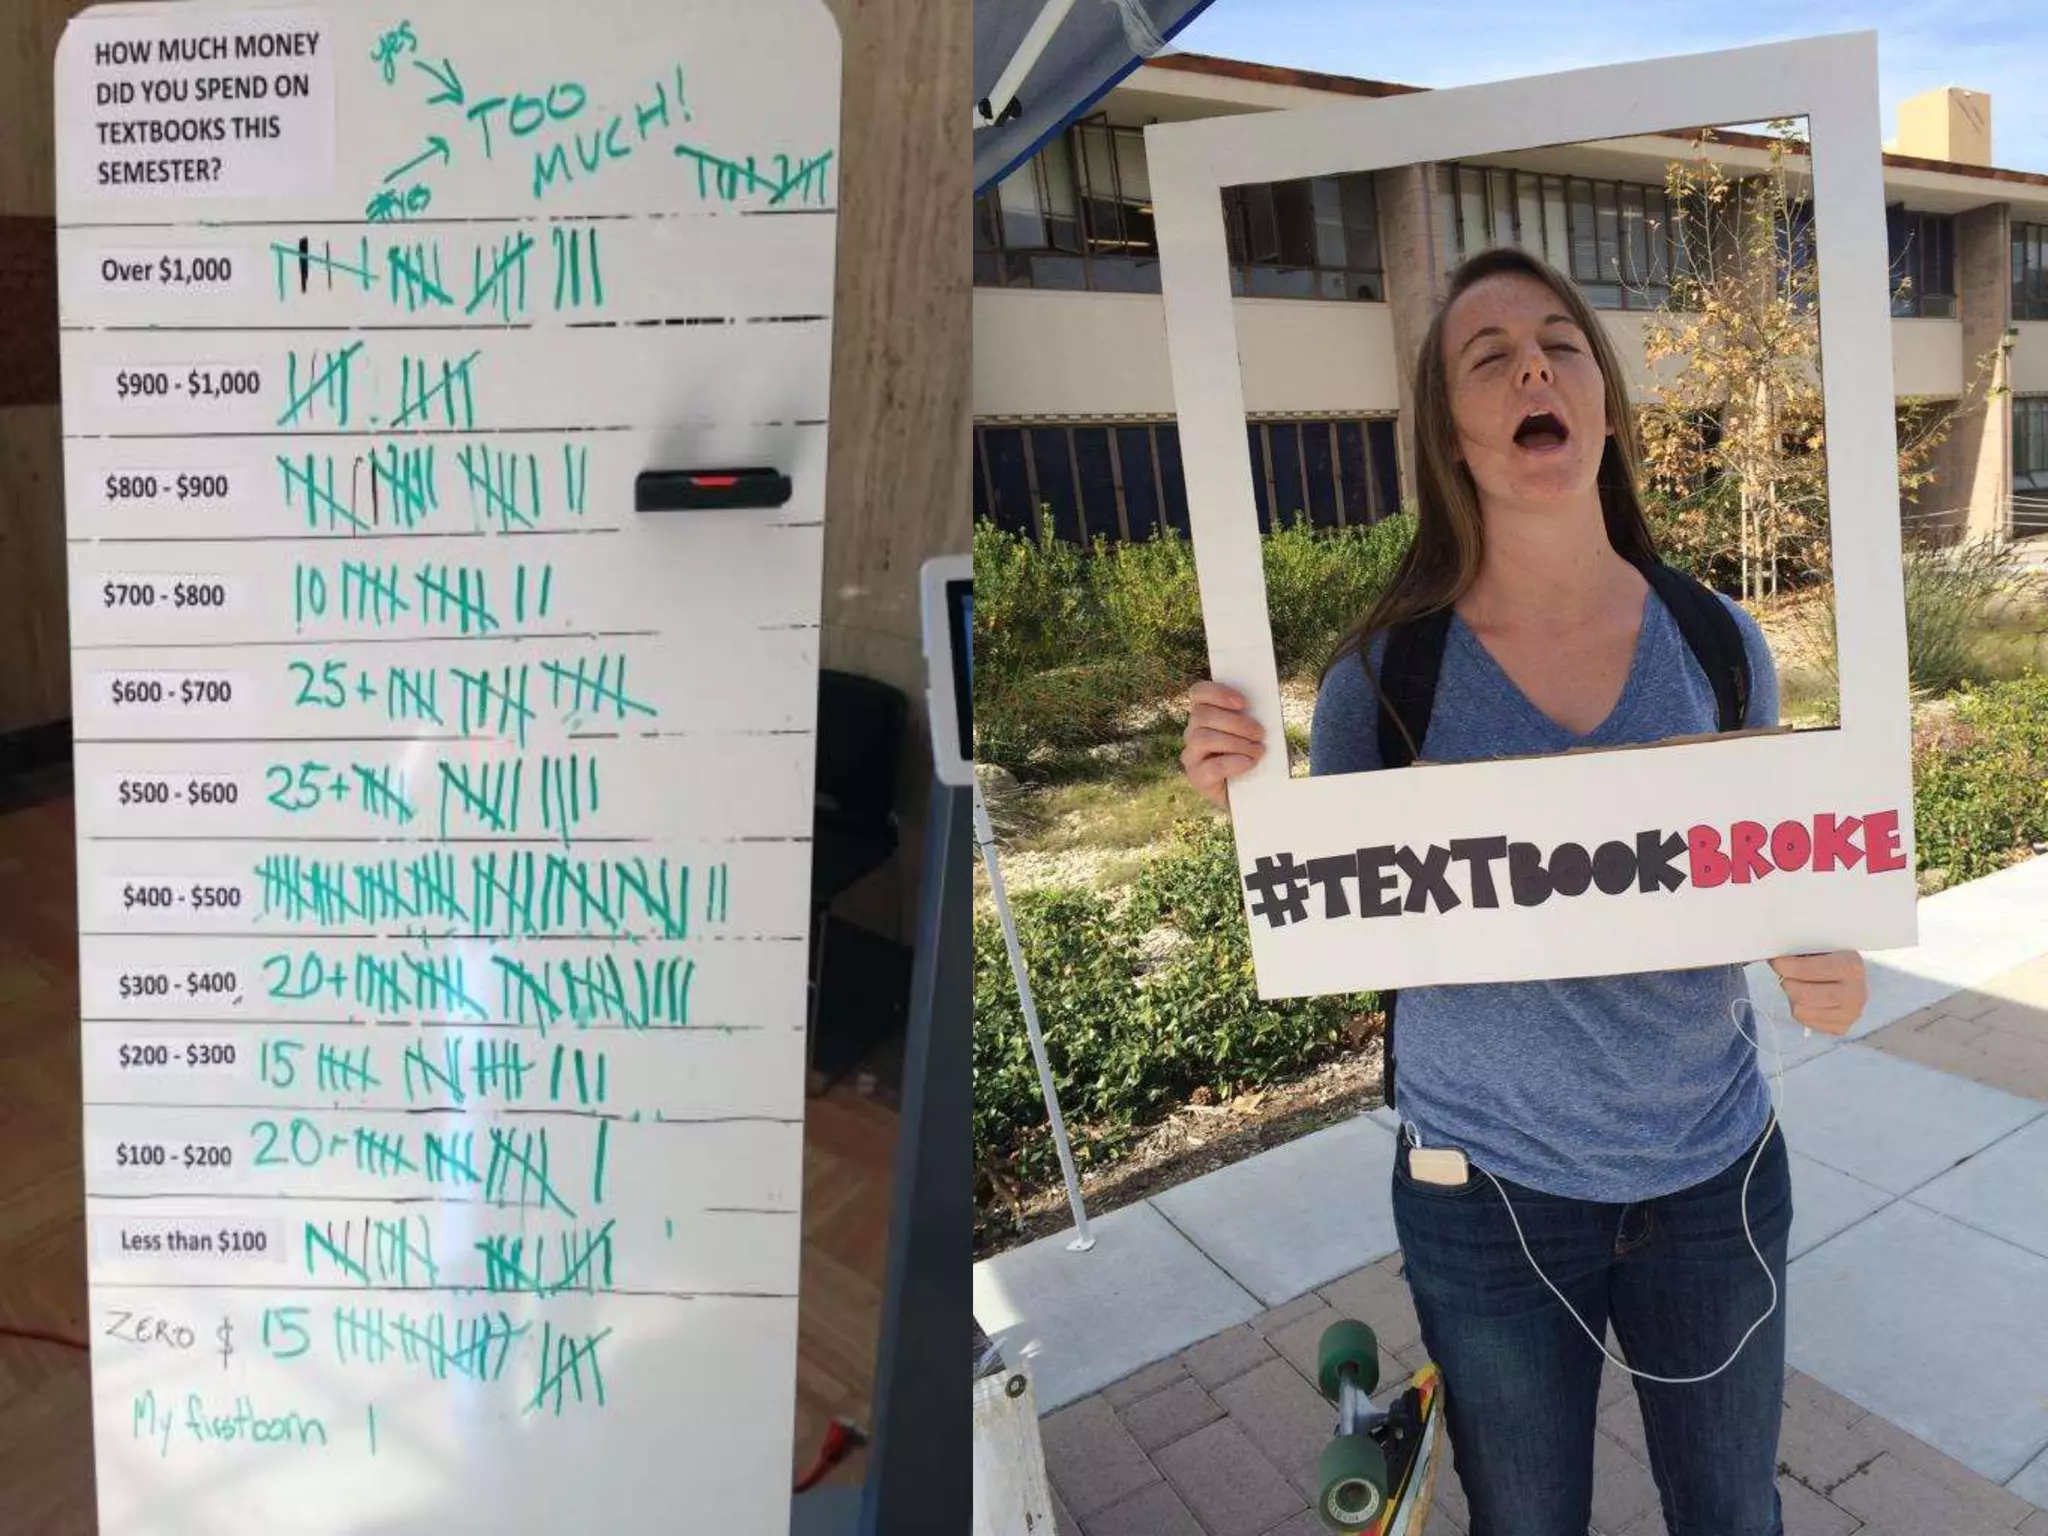 HOW MUCH MONEY
DID YOU SPEND ON
TEXTBOOKS THIS
SEMESTER?
yes
TOO
MUCH!
Over $1,000
$900 - $1,000
$800 - $900
$700 - $800 10
$600 - $700 25+
$500 - $600 25+
$400 - $500
$300 - $400 20+
$200 - $300 15
$100 - $200 20
Less than $100
ZERO $ 15
My firstborn
#TEXTBOOKBROKE